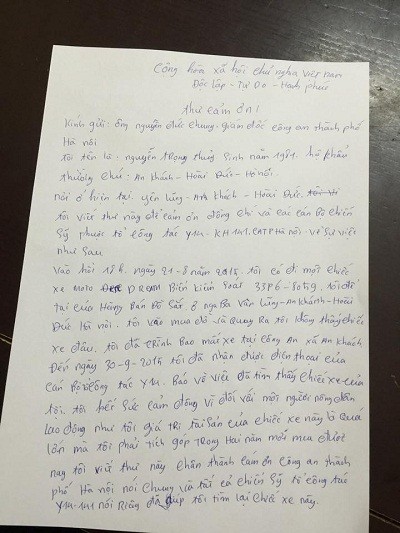 Cộng hòa xã hội chủ nghĩa Việt Nam
Độc lập - Tự Do - Hạnh phúc
thư cảm ơn!
Kính gửi: ông nguyễn đức chung. giám đốc công an thành phố
Hà nội
tôi tên là: nguyễn trọng thủy sinh năm 1971. hộ khẩu
thường chú: An khánh - Hoài Đức - Hà nội.
nơi ở hiện tại. yên lũng - An khánh - Hoài Đức.
tôi viết thư này để cảm ơn đồng chí và các cán bộ chiến
sỹ thuộc tổ công tác Y14 - KH141.CATPHà nội. về sự việc
như sau
Vào hồi 18h. ngày 21-8 năm 2015. tôi có đi một chiếc
xe moto DREAM Biển kiểm soát 33P6-8059. tôi để
tại cửa Hàng Bán Đồ Sắt ở ngã ba Vân lũng - An Khánh - Hoài
Đức Hà nội. tôi vào mua đồ và quay Ra tôi không thấy chiếc
xe đâu. tôi đã trình Báo mất xe tại công An xã An Khánh
Đến ngày 30-9-2015 tôi đã nhận được điện thoại của
cán bộ tổ công tác Y14. Báo về việc đã tìm thấy chiếc xe của
tôi. tôi hết sức cảm động vì đối với mỗi người nông dân
lao động như tôi giá trị tài sản của chiếc xe này là quá
lớn mà tôi phải tích góp trong Hai năm mới mua được
nay tôi viết thư này chân thành cảm ơn công an thành
phố Hà nội nói chung và tất cả chiến sỹ tổ công tác
Y14-141 nói Riêng đã giúp tôi tìm lại chiếc xe này.